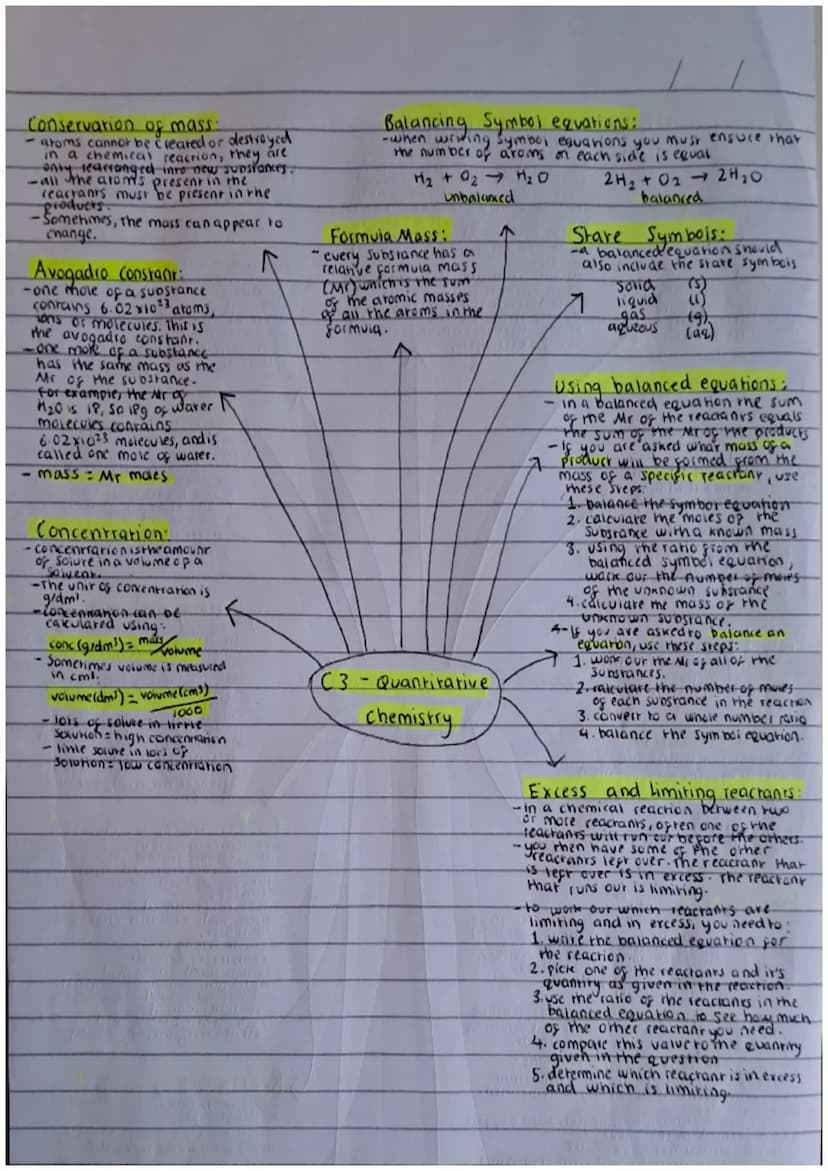 Conservation of mass:
- atoms cannot be created or destroyed
in a chemical reaction, they are
only rearranged into new substances.
- all the atoms present in the
reactants must be present in the
products.
- Sometimes, the mass can appear to
change.
Balancing Symbol equations:
- when writing symbol equations you must ensure that
the number of atoms on each side is equal
H₂ + O₂ → H₂O
unbalanced
2H₂ + O₂ → 2H₂O
balanced
Formula Mass:
- every substance has a
relative formula mass
(Mr) which is the sum
of the atomic masses
of all the atoms in the
formula.
State Symbols:
- a balanced equation should
also include the state symbols
solid (s)
liquid (l)
gas (g)
aqueous (aq)
Avogadro constant:
- one mole of a substance
contains 6.02x10²³ atoms,
ions or molecules. This is
the avogadro constant.
- one mole of a substance
has the same mass as the
Mr of the substance.
for example, the Mr of
H₂O is 18, so 18g of water
molecules contains
6.02x10²³ molecules, and is
called one mole of water.
- mass = Mr moles
Using balanced equations:
- in a balanced equation the sum
of the Mr of the reactants equals
the sum of the Mr of the products
- If you are asked what mass of a
product will be formed from the
mass of a specific reactant, use
these steps:
1. balance the symbol equation
2. calculate the moles of the
substance with a known mass
3. using the ratio from the
balanced symbol equation,
work out the number of moles
of the unknown substance
4. calculate the mass of the
unknown substance.
- If you are asked to balance an
equation, use these steps:
1. work out the Mr of all of the
substances.
2. calculate the number of moles
of each substance in the reaction
3. convert to a whole number ratio
4. balance the symbol equation.
Concentration:
- concentration is the amount
of solute in a volume of a
solvent.
- The unit of concentration is
g/dm³.
- concentration can be
calculated using:
conc(g/dm³) = mass/volume
- Sometimes volume is measured
in cm³.
volume(dm³) = volume(cm³)/1000
- lots of solute in little
solution = high concentration
- little solute in lots of
solution = low concentration
C3 - Quantitative
Chemistry
Excess and limiting reactants:
- in a chemical reaction between two
or more reactants, often one of the
reactants will run out before the others.
- you then have some of the other
reactants left over. The reactant that
is left over is in excess. The reactant
that runs out is limiting.
- to work out which reactants are
limiting and in excess, you need to:
1. write the balanced equation for
the reaction.
2. pick one of the reactants and it's
quantity as given in the reaction.
3. use the ratio of the reactants in the
balanced equation to see how much
of the other reactant you need.
4. compare this value to the quantity
given in the question
5. determine which reactant is in excess
and which is limiting.